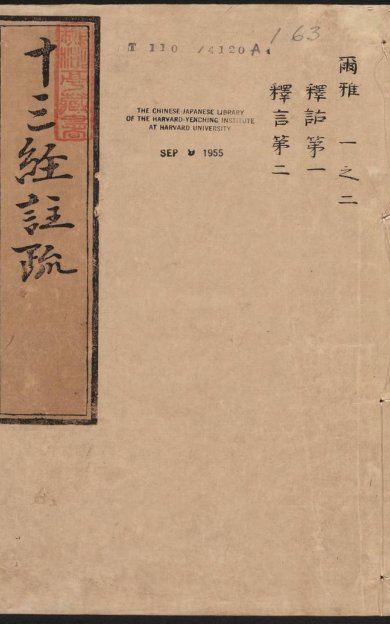 爾雅 一之二
釋詁第一
釋言第二
163
T 110 /4120A
THE CHINESE-JAPANESE LIBRARY
OF THE HARVARD-YENCHING INSTITUTE
AT HARVARD UNIVERSITY
SEP 9 1955
十三經註疏